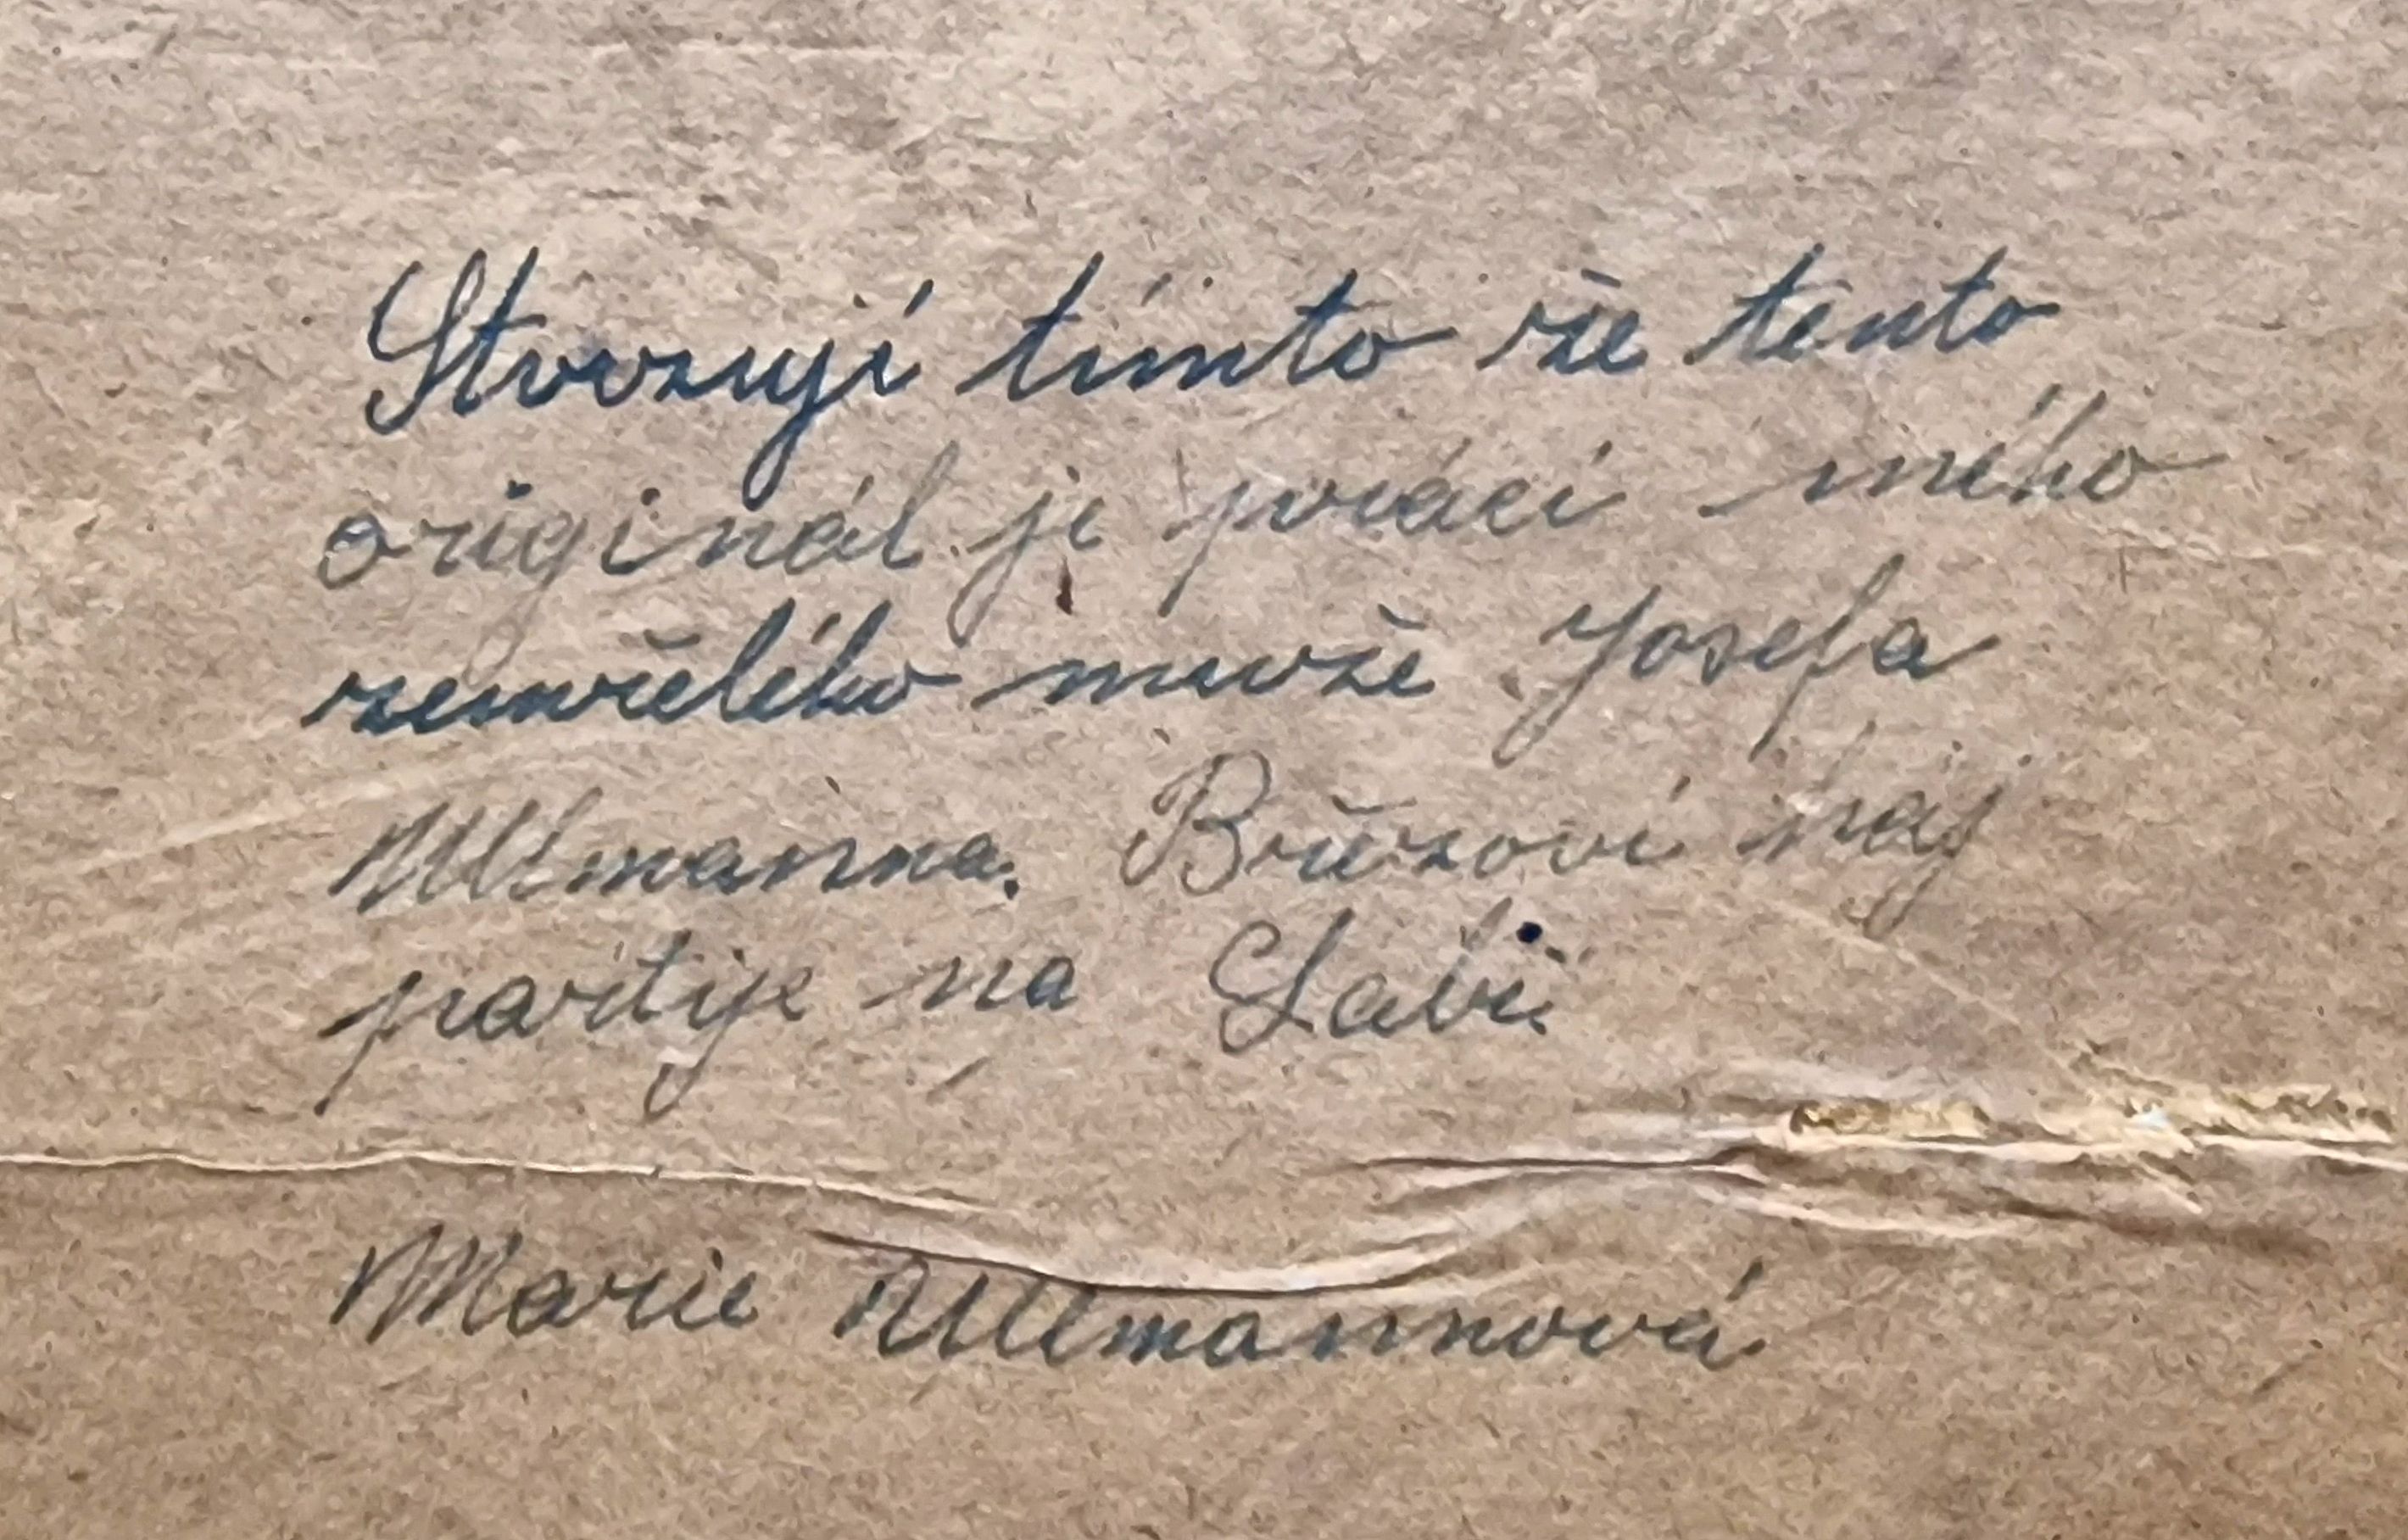 Stvrzují tímto že tento
originál je prácí mého
zemřelého muže Josefa
Ullmanna. Březoví háj
partije na Labi.
Marie Ullmannová